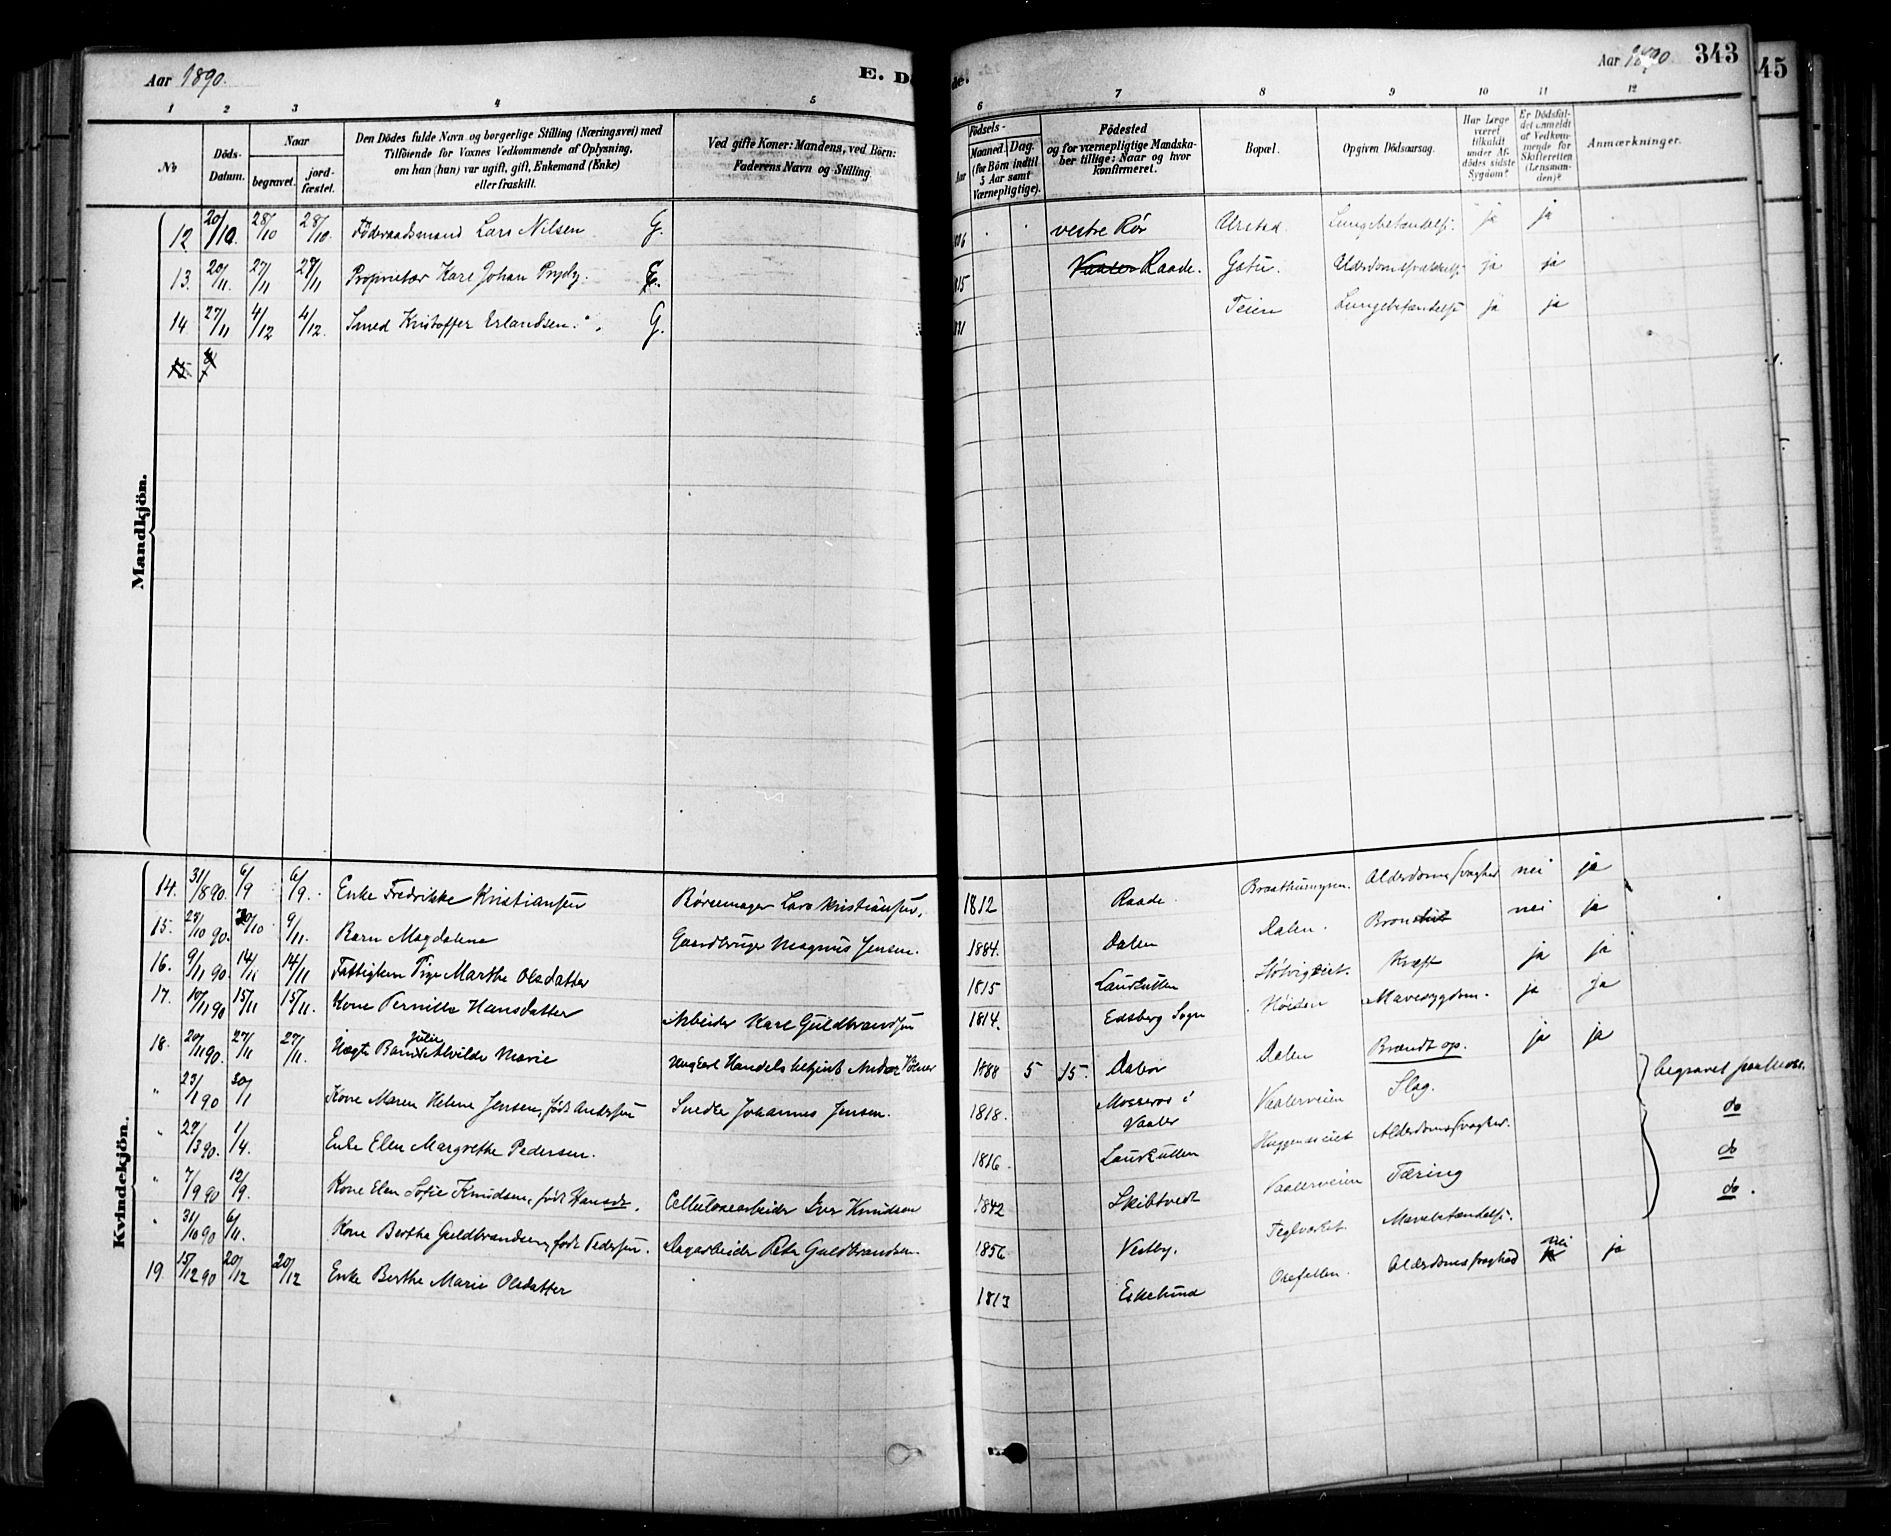 Aar 1890.
E. Dö
de.
Aar 1890
343
45
1 2 3 4 5 6 7 8 9 10 11 12
No
Döds-Datum.
Naar
begravet.
jord-fæstet.
Den Dödes fulde Navn og borgerlige Stilling (Næringsvei) med
Tilföiende for Voxnes Vedkommende af Oplysning,
om han (hun) var ugift, gift, Enkemand (Enke)
eller fraskilt.
Ved gifte Koner: Mandens, ved Börn:
Faderens Navn og Stilling
Födsels-
Aar
Maaned. Dag.
(for Börn indtil
5 Aar samt
Værnepligtige).
Födested
og for værnepligtige Mandska-
ber tillige: Naar og hvor
konfirmeret.
Bopæl.
Opgiven Dödsaarsag.
Har Læge
været
tilkaldt
under Af-
dödes sidste
Sygdom?
Er Dödsfal-
det anmeldt
af Vedkom-
mende for
Skifteretten
(Lensman-
den)?
Anmærkninger.
Mandkjön.
12 20/10. 28/10 28/10. Föderaadsmand Lars Nilsen G. vestre Rör Lungebetændelse. ja ja
13. 20/11. 27/11 27/11 Proprietær Karl Johan Pryds. 1815 Vaaler Raade. ja ja
14 27/11 4/12 4/12. Smed Kristoffer Erlandsen. G. Teien Lungebetændelse ja ja
15
Kvindekjön.
14. 31/8 90. 6/9 6/9. Enke Fredrikke Kristiansen Börsemager Lars Kristiansen. 1812 Raade. Alderdomssvaghed nei ja
15. 27/10 90. 30/10 9/11. Barn Magdalena Gaardbruger Magnus Jensen. 1884. Dalen Dalen. nei ja
16. 9/11 90. 14/11 14/11 Fattiglem Pige Marthe Olsdatter 1815 Kræft ja ja
17. 10/11 90 15/11 15/11. Kone Pernille Hansdatter Arbeider Karl Guldbrandsen 1814. Edsberg Sogn Höiden Mavesygdom. ja ja
18. 20/11 90. 27/11 27/11. Uægte Barn Julie Alvilde Marie Ungkarl Handelsbetjent 1888 5 15. Dalen Dalen Brændt op. ja ja
" 23/1 90 30/1 Kone Maren Helene Jensen, födt Andersen Snedker Johannes Jensen. 1818. Mosseros i Vaaler Vaalerveien Slag. begravet paa Mosse.
" 27/3 90. 1/4. Enke Elen Margrethe Pedersen. 1816. Alderdomssvaghed. do
" 7/9 90 12/9. Kone Elen Sofie Knudsen, födt Hansdr. Cellulosearbeider Iver Knudsen 1842 Skibtvedt Vaalerveien Tæring do
" 31/10 90 6/11. Kone Berthe Guldbrandsen, födt Pedersen. Dagarbeider Peter Guldbrandsen. 1856 Vestby. Teglværket Mavebetændelse. do.
19. 15/12 90 20/12 20/12 Enke Berthe Marie Olsdatter 1813 Eskelund Alderdomssvaghed nei ja